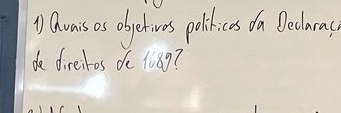 1) Quais os objetivos políticos da Declaraç
de direitos de 1689?